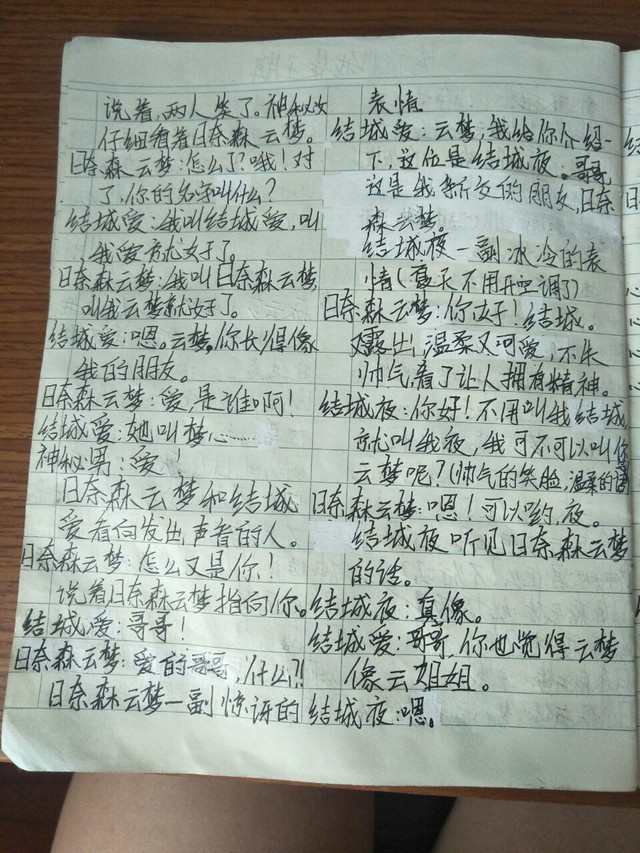 说着，两人笑了。神秘女
仔细看着日奈森云梦。
日奈森云梦：怎么了？哦！对
了，你的名字叫什么？
结城爱：我叫结城爱，叫
我爱就好了。
日奈森云梦：我叫日奈森云梦
叫我云梦就好了。
结城爱：嗯。云梦，你长得像
我的朋友。
日奈森云梦：爱，是谁啊！
结城爱：她叫梦心……
神秘男：爱！
日奈森云梦和结城
爱看向发出声音的人。
日奈森云梦：怎么又是你！
说着日奈森云梦指向你。
结城爱：哥哥！
日奈森云梦：爱的哥哥，什么？！
日奈森云梦一副惊讶的
表情。
结城爱：云梦，我给你介绍一
下，这位是结城夜。哥哥，
这是我新交的朋友，日奈
森云梦。
结城夜一副冰冷的表
情（夏天不用开空调了）
日奈森云梦：你好！结城。
露出，温柔又可爱，不失
帅气，看了让人拥有精神。
结城夜：你好！不用叫我结城，
就叫我夜，我可不可以叫你
云梦呢？（帅气的笑脸，温柔的
日奈森云梦：嗯！可以哟，夜。
结城夜听见日奈森云梦
的话。
结城夜：真像。
结城爱：哥哥，你也觉得云梦
像云姐姐。
结城夜：嗯。